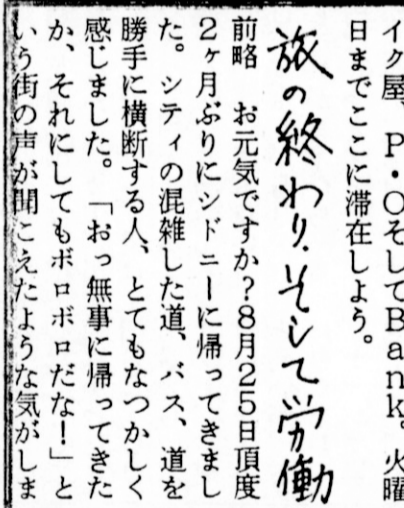 イク屋、P・OそしてBank。火曜
日までここに滞在しよう。
旅の終わり.そして労働
前略　お元気ですか？8月25日頂度
2ヶ月ぶりにシドニーに帰ってきまし
た。シティの混雑した道、バス、道を
勝手に横断する人、とてもなつかしく
感じました。「おっ無事に帰ってきた
か、それにしてもボロボロだな！」と
いう街の声が聞こえたような気がしま